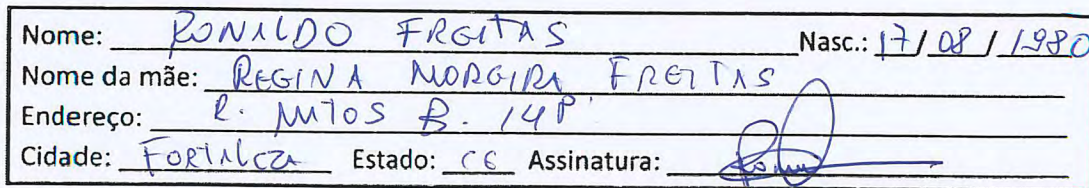 Nome: RONALDO FREITAS Nasc.: 17/08/1980
Nome da mãe: REGINA MOREIRA FREITAS
Endereço: R.
Cidade: FORTALEZA Estado: CE Assinatura: